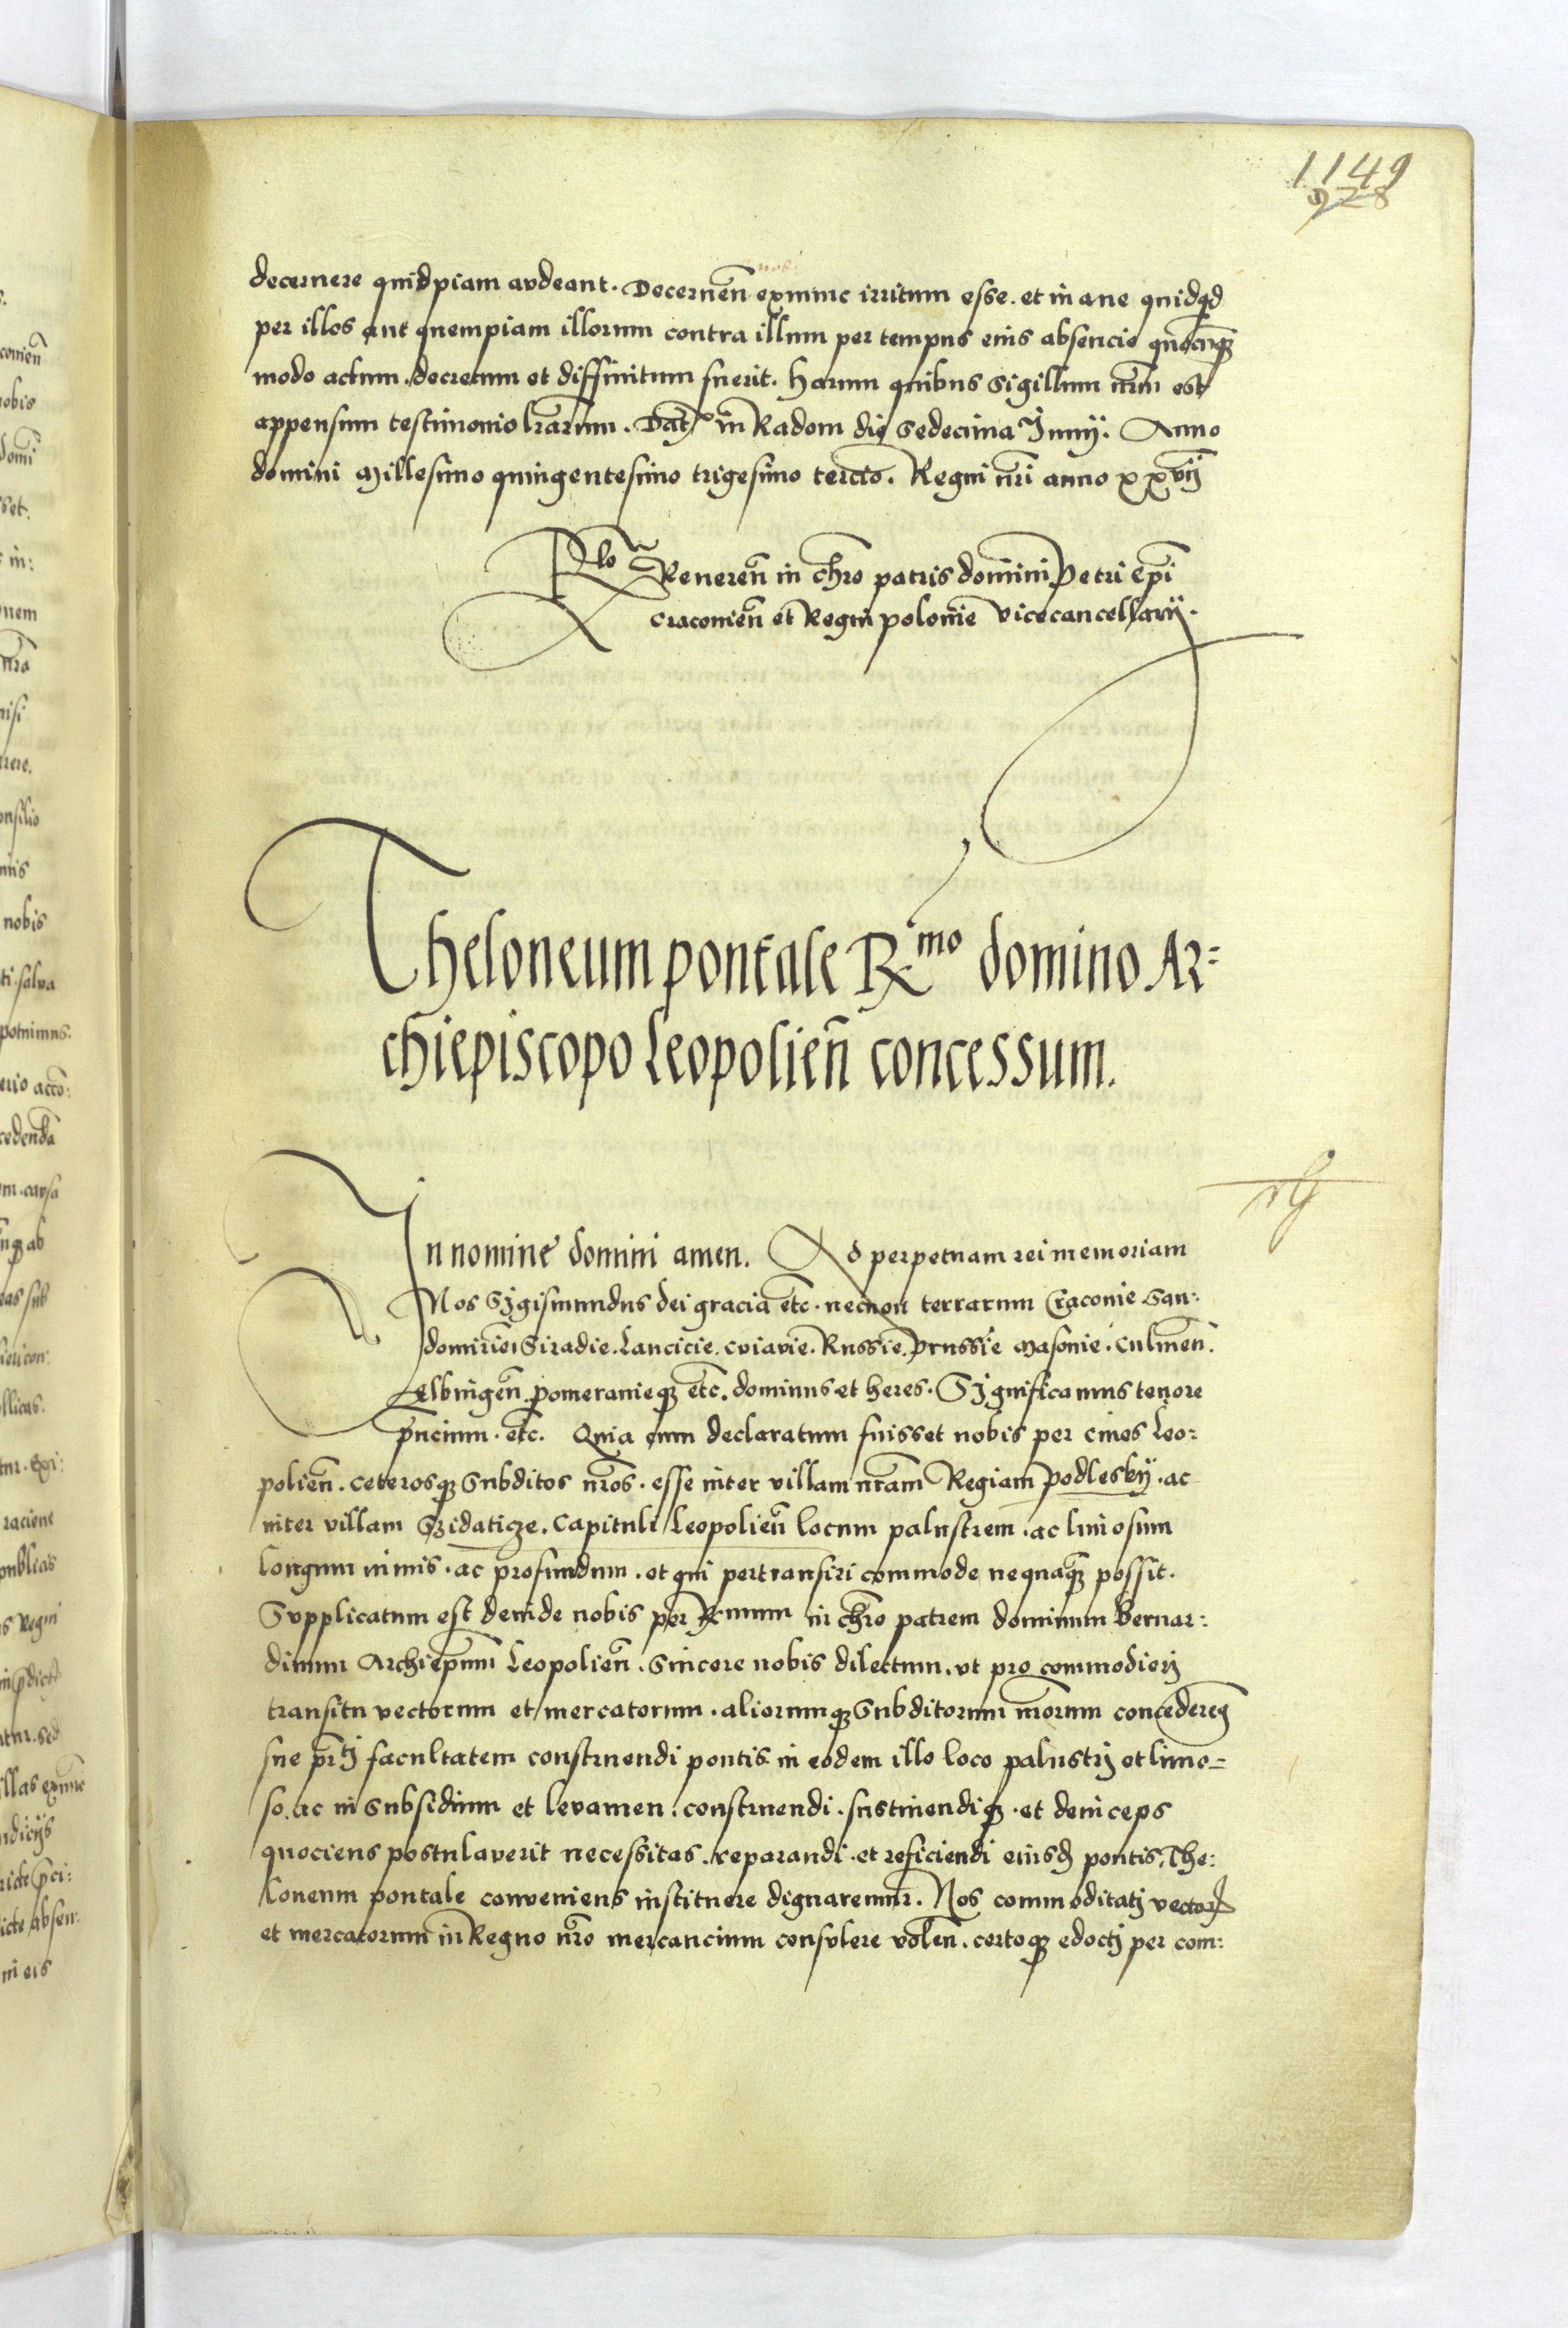 1149
928
decernere quidpiam audeant. Decernen̄ exnunc irritum esse. et in ane quidqd
per illos aut quempiam illorum contra illum per tempus eius absencie quocūq3
modo actum. decretum et diffinitum fuerit. Harum quibus Sigillum nr̄m est
appensum testimonio lr̄arum. Dat̄ in Radom die Sedecima Junij. Anno
domini Millesimo quingentesimo trigesimo tercio. Regni nr̄i anno xxvij
Rlo Reueren̄ in chro patris domini Petri epī
Cracouien̄ et Regni polonie vicecancellarij.
Theloneum pontale R.mo domino Ar=
chiepiscopo Leopolien̄ concessum.
In nomine domini amen. Ad perpetuam rei memoriam
Nos Sigismundus dei gracia etc. necnon terrarum Cracouie San:
domirien̄ Siradie. Lancicie. Cuiavie. Russie. Prussie Masouie. Culmen̄.
Elbingen̄ pomeranieq3 etc. dominus et heres. Significamus tenore
pn̄cium. etc. Quia cum declaratum fuisset nobis per ciues Leo:
polien̄. ceterosq3 Subditos nr̄os. esse inter villam nr̄am Regiam Podlesky. ac
inter villam Sridaticze. Capituli Leopolien̄ locum palustrem. ac limosum
longum nimis. ac profundum. et qui pertransiri commode nequaq̄3 possit.
Supplicatum est deinde nobis per R.mum in chro patrem dominum Bernar:
dinum Archiepum̄ Leopolien̄. Sincere nobis dilectum. ut pro commodiorj
transitu vectorum et mercatorum. aliorumq3 Subditorum nr̄orum concederem9
sue pr̄tj facultatem construendi pontis in eodem illo loco palustrj et limo=
so. ac in Subsidium et levamen. construendi. sustinendiq3. et deinceps
quociens postulaverit necessitas. reparandi. et reficiendi eiusd̄ pontis. The:
loneum pontale conveniens instituere dignaremur. Nos commoditatj vector̄
et mercatorum in Regno nr̄o mercancium consulere volen̄. certoq3 edoctj per com: